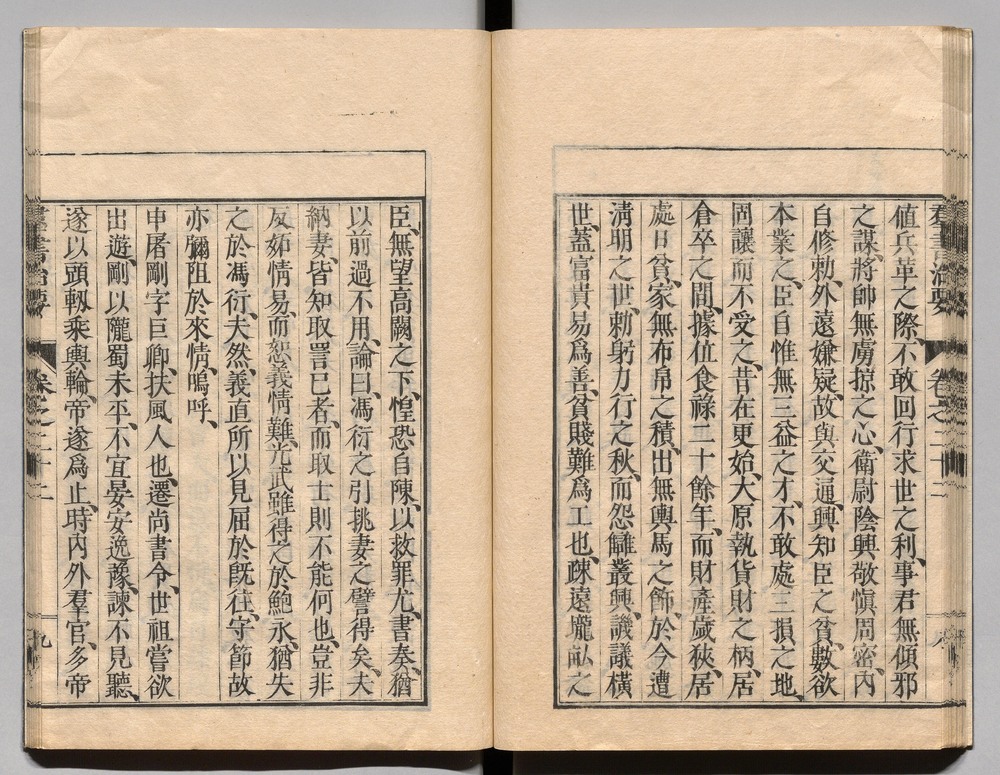 羣書治要
卷之二十二
値兵革之際、不敢回行求世之利、事君無傾邪
之謀、將帥無虜掠之心、衛尉陰興敬愼周密、內
自修勅、外遠嫌疑、故與交通、興知臣之貧、數欲
本業之、臣自惟無三益之才、不敢處三損之地、
固讓而不受之、昔在更始、大原執貨財之柄、居
倉卒之間、據位食祿二十餘年、而財產歲狹、居
處日貧、家無布帛之積、出無輿馬之飾、於今遭
淸明之世、勅躬力行之秋、而怨讎叢興、譏議橫
世、蓋富貴易爲善、貧賤難爲工也、疎遠壠畝之
臣、無望高闕之下、惶恐自陳、以救罪尤、書奏、猶
以前過不用、論曰、馮衍之引挑妻之譬得矣、夫
納妻、皆知取詈己者、而取士則不能何也、豈非
反妬情易、而恕義情難、光武雖得之於鮑永、猶失
之於馮衍、夫然、義直所以見屈於旣往、守節故
亦彌阻於來情、嗚呼、
申屠剛字巨卿、扶風人也、遷尚書令、世祖嘗欲
出遊、剛以隴蜀未平、不宜晏安逸豫、諫不見聽、
遂以頭軔乘輿輪、帝遂爲止、時內外羣官、多帝
羣書治要
卷之二十二
九